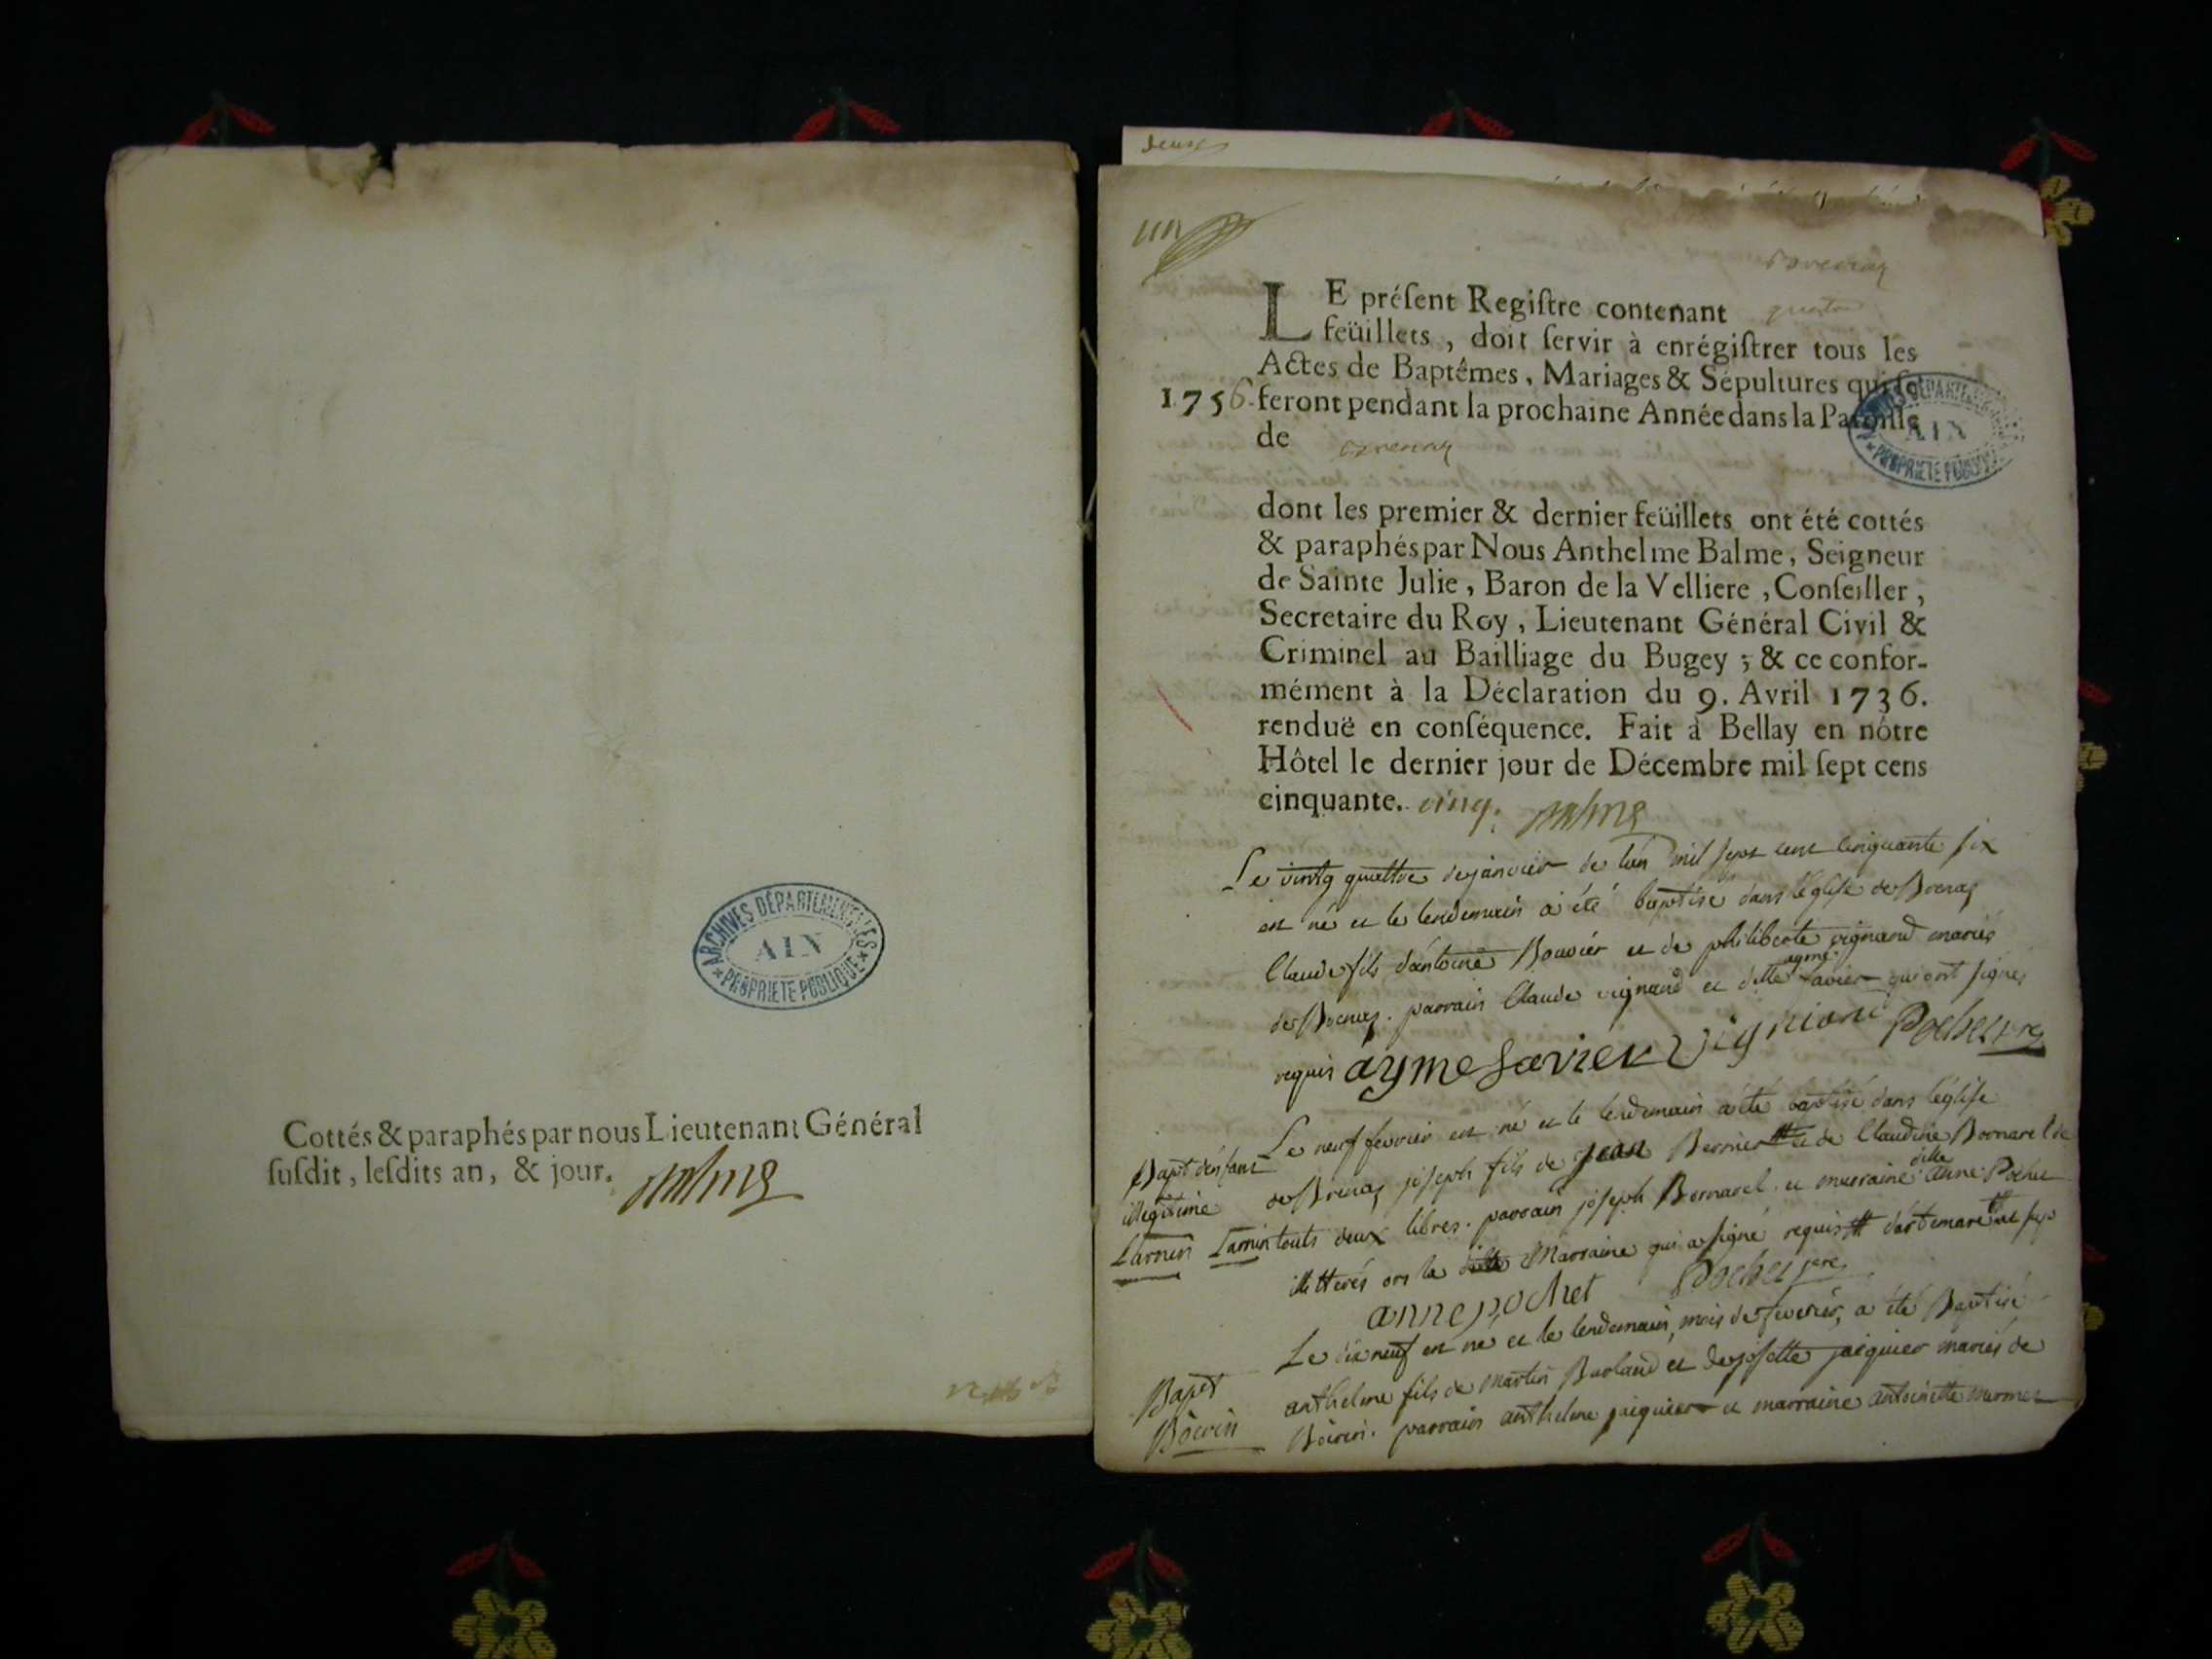 Cottés & paraphés par nous Lieutenant Général
ſuſdit, leſdits an, & jour. Balme
ARCHIVES DÉPARTEMENTALES
AIN
* PROPRIÉTÉ PUBLIQUE *
deux
un
LE préſent Regiſtre contenant quatre
feüillets, doit ſervir à enrégiſtrer tous les
Actes de Baptêmes, Mariages & Sépultures qui ſe
1756. feront pendant la prochaine Année dans la Paroiſſe
de Brenaz
dont les premier & dernier feüillets ont été cottés
& paraphés par Nous Anthelme Balme, Seigneur
de Sainte Julie, Baron de la Velliere, Conſeiller,
Secretaire du Roy, Lieutenant Général Civil &
Criminel au Bailliage du Bugey ; & ce confor-
mément à la Déclaration du 9. Avril 1736.
renduë en conſéquence. Fait à Bellay en nôtre
Hôtel le dernier jour de Décembre mil ſept cens
cinquante. cinq. Balme
ARCHIVES DÉPARTEMENTALES
AIN
* PROPRIÉTÉ PUBLIQUE *
Le vintg quattre de janvier de l'an mil sept cent cinquante six
est né et le lendemain a été baptisé dans l'église de Brenaz
Claude fils d'antoine Bouvier et de philiberte vignand mariés
de Brenaz. parrain Claude vignand et dlle ayme Savier qui ont signé
requis ayme Savier Vigniand Pochet
Bapt d'enfant
illegitime
Larnin
Le neuf fevrier est né et le lendemain a été baptisé dans l'église
de Brenaz joseph fils de jean Bernier et de Claudine Bornarel de
Larnin touts deux libres. parrain joseph Bornarel et marraine dlle anne Pochet
illettrés ors la Marraine qui a signé requis d'artemare
anne pochet Pochet
Bapt
Boirin
Le dixneuf est né et le lendemain, mois de fevrier, a été Baptisé
anthelme fils de Martin Burland et de josette jaiguier mariés de
Boirin. parrain anthelme jaiguier et marraine antoinette mermet